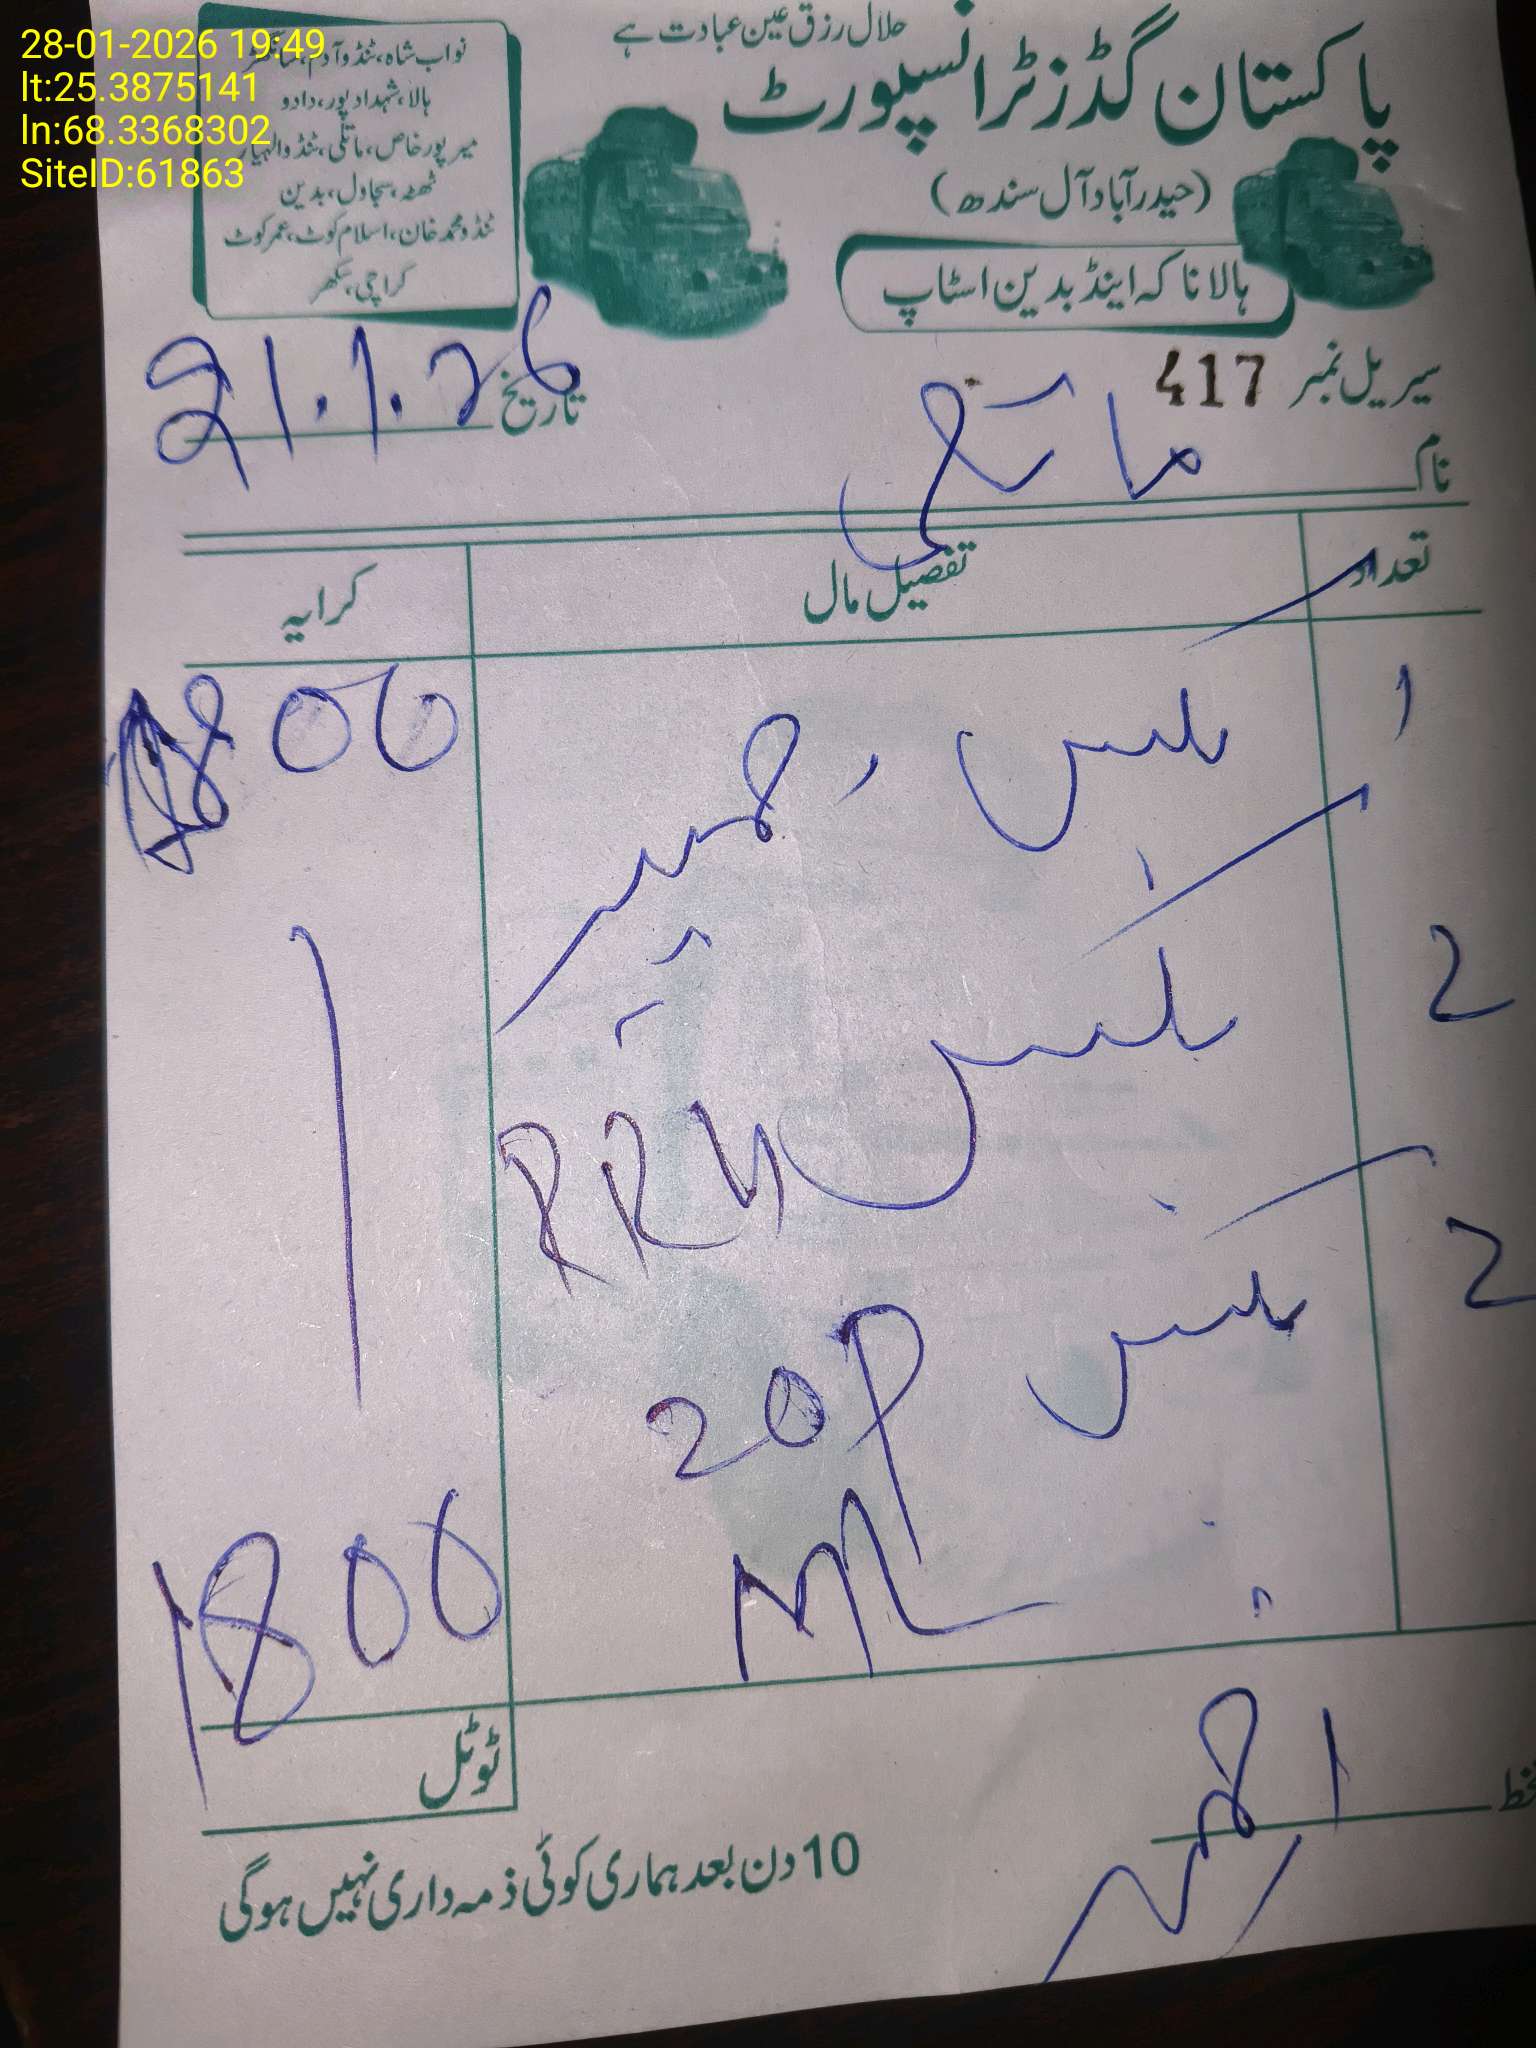 28-01-2026 19:49
lt:25.3875141
ln:68.3368302
SiteID:61863
حلال رزق عین عبادت ہے
پاکستان گڈز ٹرانسپورٹ
(حیدرآباد آل سندھ)
ہالا ناکہ اینڈ بدین اسٹاپ
نواب شاہ، ٹنڈوآدم، سانگھڑ
ہالا، شہدادپور، دادو
میرپورخاص، ماتلی، ٹنڈوالہیار
ٹھٹہ، سجاول، بدین
ٹنڈومحمدخان، اسلام کوٹ، عمرکوٹ
کراچی، سکھر
سیریل نمبر 417
تاریخ 21.1.26
نام ماتلی
تعداد تفصیل مال کرایہ
1 بکس 1800
2 بکس RRU
2 بکس 20P
ML
1800
ٹوٹل
10 دن بعد ہماری کوئی ذمہ داری نہیں ہوگی